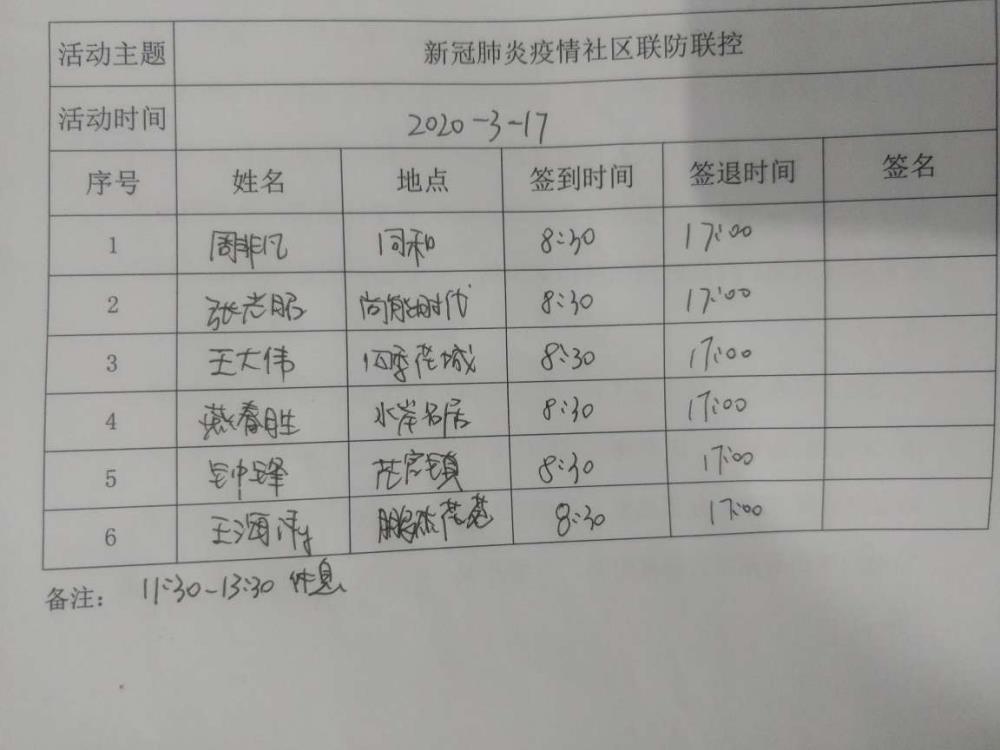 活动主题 新冠肺炎疫情社区联防联控
活动时间 2020-3-17
序号 姓名 地点 签到时间 签退时间 签名
1 周非凡 同和 8:30 17:00
2 张志服 尚能时代 8:30 17:00
3 王大伟 四季花城 8:30 17:00
4 燕春胜 水岸名居 8:30 17:00
5 钟锋 花官镇 8:30 17:00
6 王海涛 花苑 8:30 17:00
备注: 11:30-13:30 休息